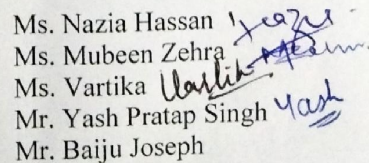 Ms. Nazia Hassan
Ms. Mubeen Zehra
Ms. Vartika Vartika
Mr. Yash Pratap Singh Yash
Mr. Baiju Joseph